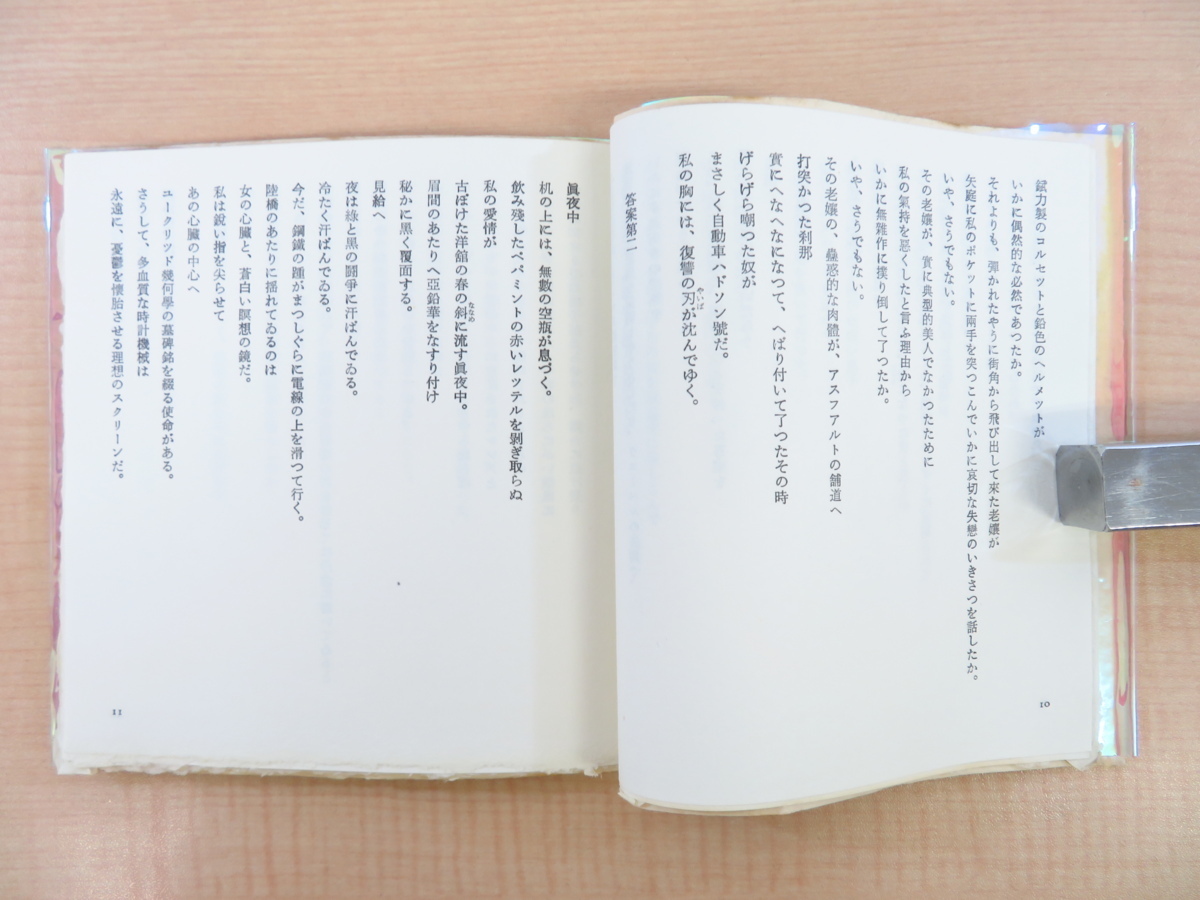 錻力製のコルセットと鉛色のヘルメツトが
いかに偶然的な必然であつたか。
それよりも、彈かれたやうに街角から飛び出して来た老孃が
矢庭に私のポケットに兩手を突つこんでいかに哀切な失戀のいきさつを話したか。
いや、さうでもない。
その老孃が、實に典型的美人でなかつたために
私の氣持を惡くしたと言ふ理由から
いかに無雜作に撲り倒して了つたか。
いや、さうでもない。
その老孃の、蠱惑的な肉體が、アスフアルトの舗道へ
打突かつた刹那
實にへなへなになつて、へばり付いて了つたその時
げらげら嘲つた奴が
まさしく自動車ハドソン號だ。
私の胸には、復讐の刃やいばが沈んでゆく。
答案第二
10
眞夜中
机の上には、無數の空瓶が息づく。
飮み殘したペパミントの赤いレツテルを剝ぎ取らぬ
私の愛情が
古ぼけた洋舘の春の斜ななめに流す眞夜中。
眉間のあたりへ亞鉛華をなすり付け
秘かに黑く覆面する。
見給へ
夜は綠と黑の鬪爭に汗ばんでゐる。
冷たく汗ばんでゐる。
今だ、鋼鐵の踵がまつしぐらに電線の上を滑つて行く。
陸橋のあたりに搖れてゐるのは
女の心臟と、蒼白い瞑想の鏡だ。
私は銳い指を尖らせて
あの心臟の中心へ
ユークリツド幾何學の墓碑銘を綴る使命がある。
さうして、多血質な時計機械は
永遠に、憂鬱を懷胎させる理想のスクリーンだ。
11